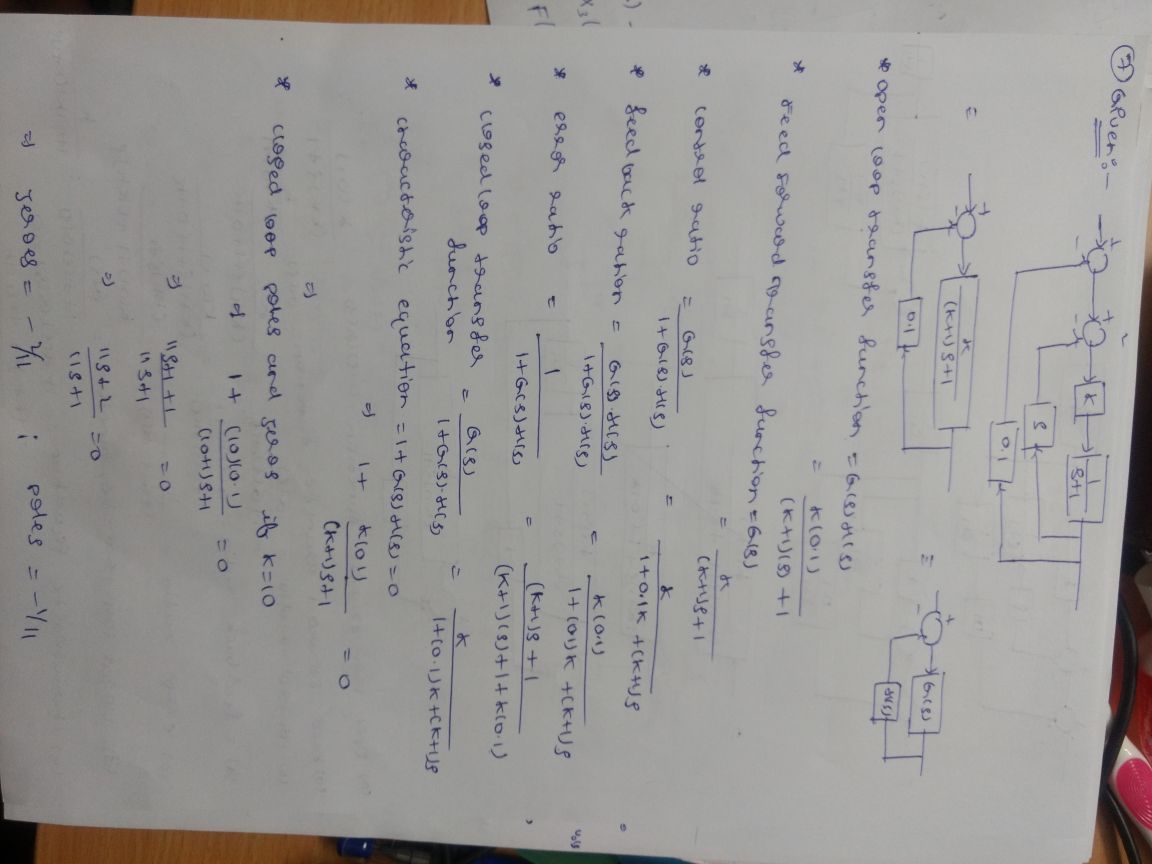 ⑦ Given :-
+ - + - K 1/(s+1)
s
0.1
= + - K/((K+1)s+1)
0.1
≡ + - G(s)
H(s)
* open loop transfer function = G(s) H(s)
= K(0.1)/((K+1)(s)+1)
* Feed forward transfer function = G(s)
= K/((K+1)s+1)
* control ratio = G(s)/(1+G(s)·H(s)) = K/(1+0.1K+(K+1)s)
* feedback ration = G(s)·H(s)/(1+G(s)·H(s)) = K(0.1)/(1+(0.1)K+(K+1)s)
* error ratio = 1/(1+G(s)·H(s)) = ((K+1)s+1)/((K+1)(s)+1+K(0.1))
* closed loop transfer function = G(s)/(1+G(s)·H(s)) = K/(1+(0.1)K+(K+1)s)
* characteristic equation = 1+G(s)H(s)=0
⇒ 1+ K(0.1)/((K+1)s+1) = 0
* closed loop poles and zeros if K=10
⇒ 1+ (10)(0.1)/((10+1)s+1) = 0
⇒ (11s+1+1)/(11s+1) = 0
⇒ (11s+2)/(11s+1) = 0
⇒ zeroes = -2/11 ; poles = -1/11